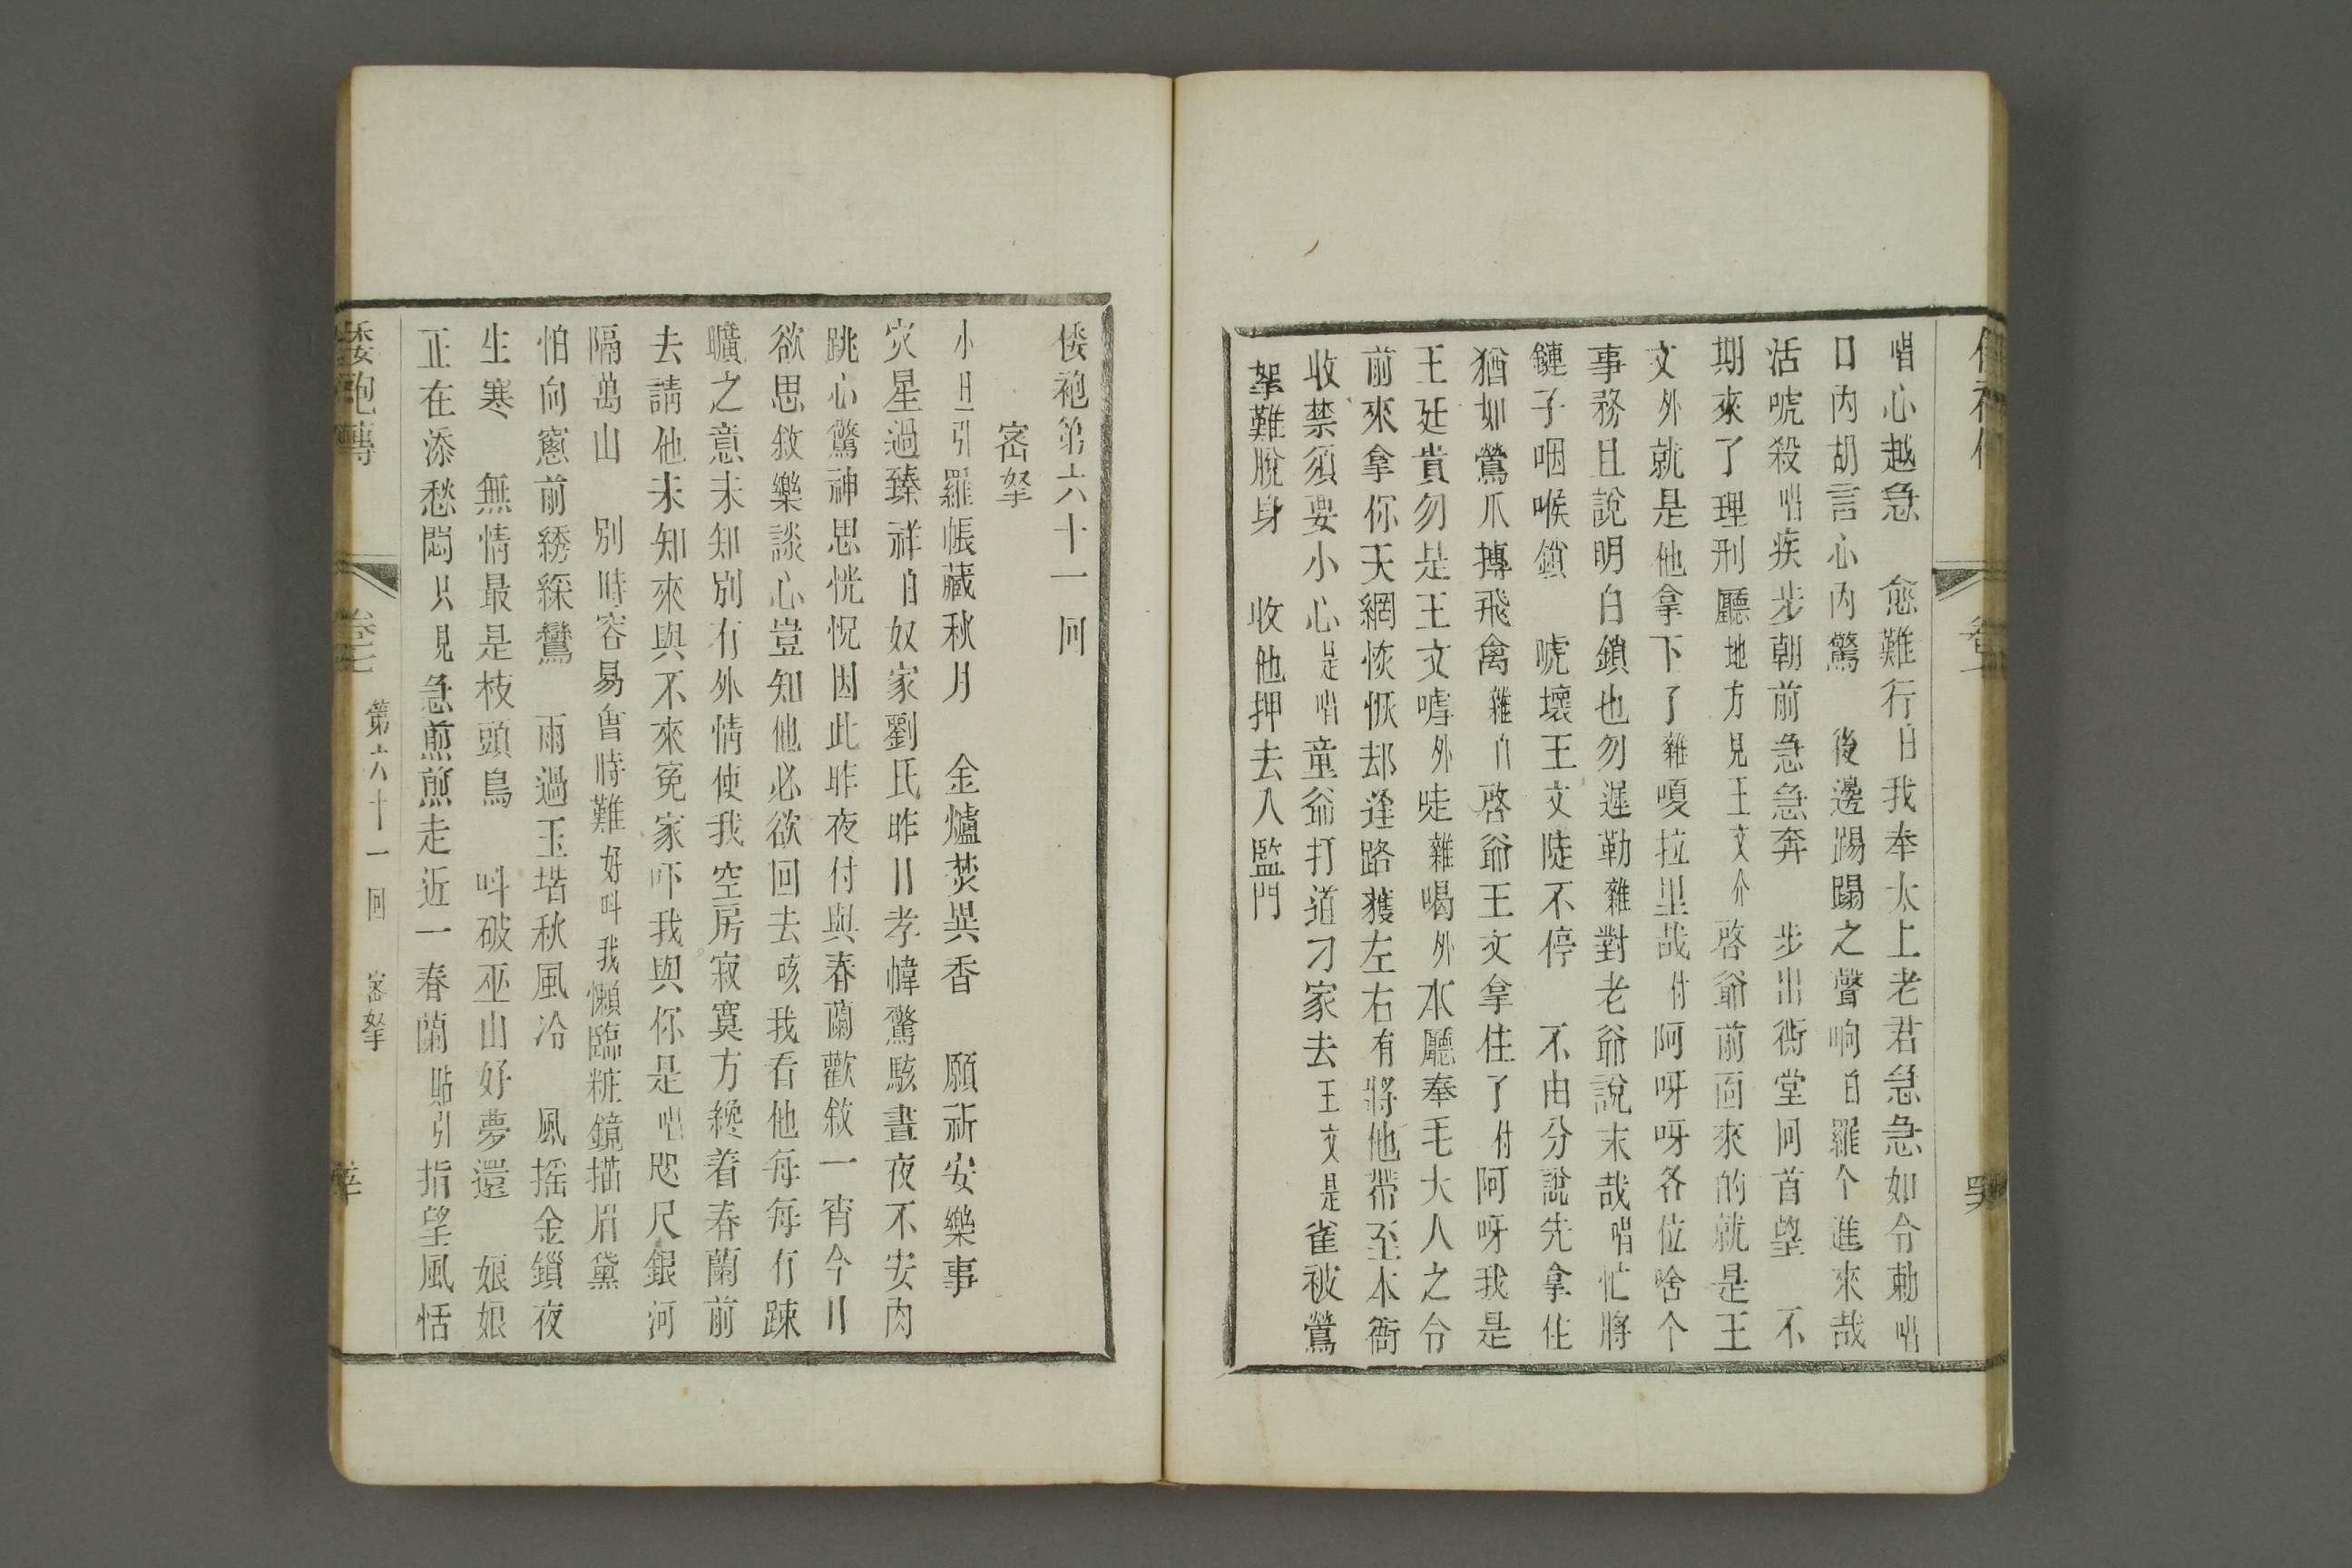 唱心越急　愈難行白我奉太上老君急急如令勅唱
口內胡言心內驚　後邊踢蹋之聲响白羅个進來哉
活唬殺唱疾步朝前急急奔　步出衙堂回首望　不
期來了理刑廳地方見王文介啓爺前面來的就是王
文外就是他拿下了雜嗄拉里哉付阿呀呀各位啥个
事務且說明白鎖也勿遲勒雜對老爺說末哉唱忙將
鏈子咽喉鎖　唬壞王文陡不停　不由分說先拿住
猶如鶯爪摶飛禽雜白啓爺王文拿住了付阿呀我是
王廷貴勿是王文嘑外哇雜喝外本廳奉毛大人之令
前來拿你天網恢恢却逢路獲左右有將他帶至本衙
收禁須要小心是唱童爺打道刁家去王文是雀被鶯
拏難脫身　收他押去入監門
倭袍第六十一回
密拏
小旦引羅帳藏秋月　金爐焚異香　願祈安樂事
灾星過臻祥白奴家劉氏昨日孝幃驚駭晝夜不安肉
跳心驚神思恍惚因此昨夜付與春蘭歡敘一宵今日
欲思敘樂談心豈知他必欲回去咳我看他每每有踈
曠之意未知別有外情使我空房寂寞方纔着春蘭前
去請他未知來與不來寃家吓我與你是唱咫尺銀河
隔萬山　別時容易會時難好呌我懶臨粧鏡描眉黛
怕向窻前綉綵鸞　雨過玉堦秋風冷　風摇金鎖夜
生寒　無情最是枝頭鳥　呌破巫山好夢還　娘娘
正在添愁悶只見急煎煎走近一春蘭貼引指望風恬
倭袍傳　卷七　第六十一回　密拏